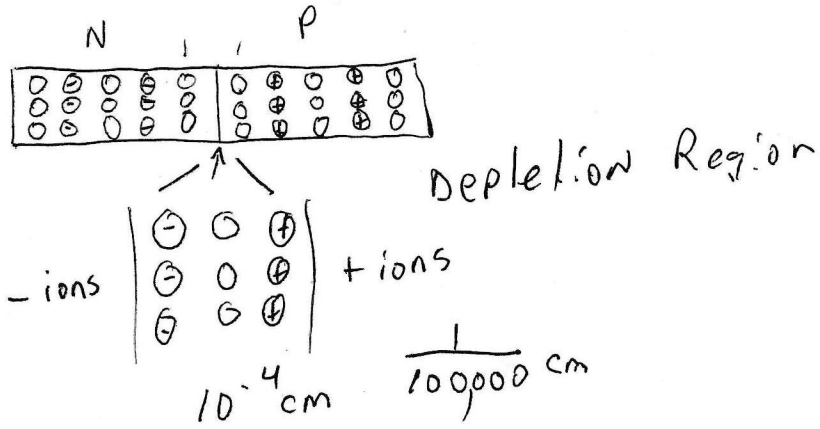 N P
Depletion Region
- ions + ions
10⁻⁴ cm
1
100,000 cm